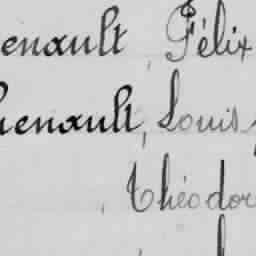 enault, Félix
henault, Louis
Théodor